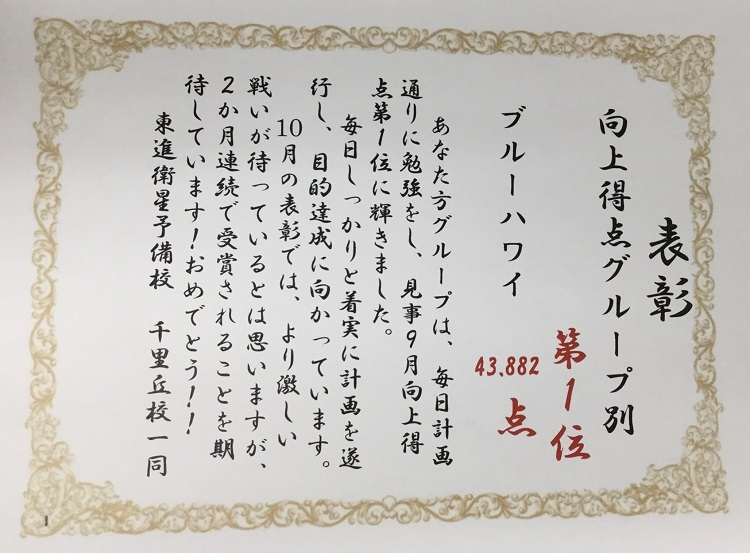 表彰
向上得点グループ別
第1位
43.882
点
ブルーハワイ
あなた方グループは、毎日計画
通りに勉強をし、見事9月向上得
点第1位に輝きました。
毎日しっかりと着実に計画を遂
行し、目的達成に向かっています。
10月の表彰では、より激しい
戦いが待っているとは思いますが、
2か月連続で受賞されることを期
待しています!おめでとう!!
東進衛星予備校 千里丘校一同
1